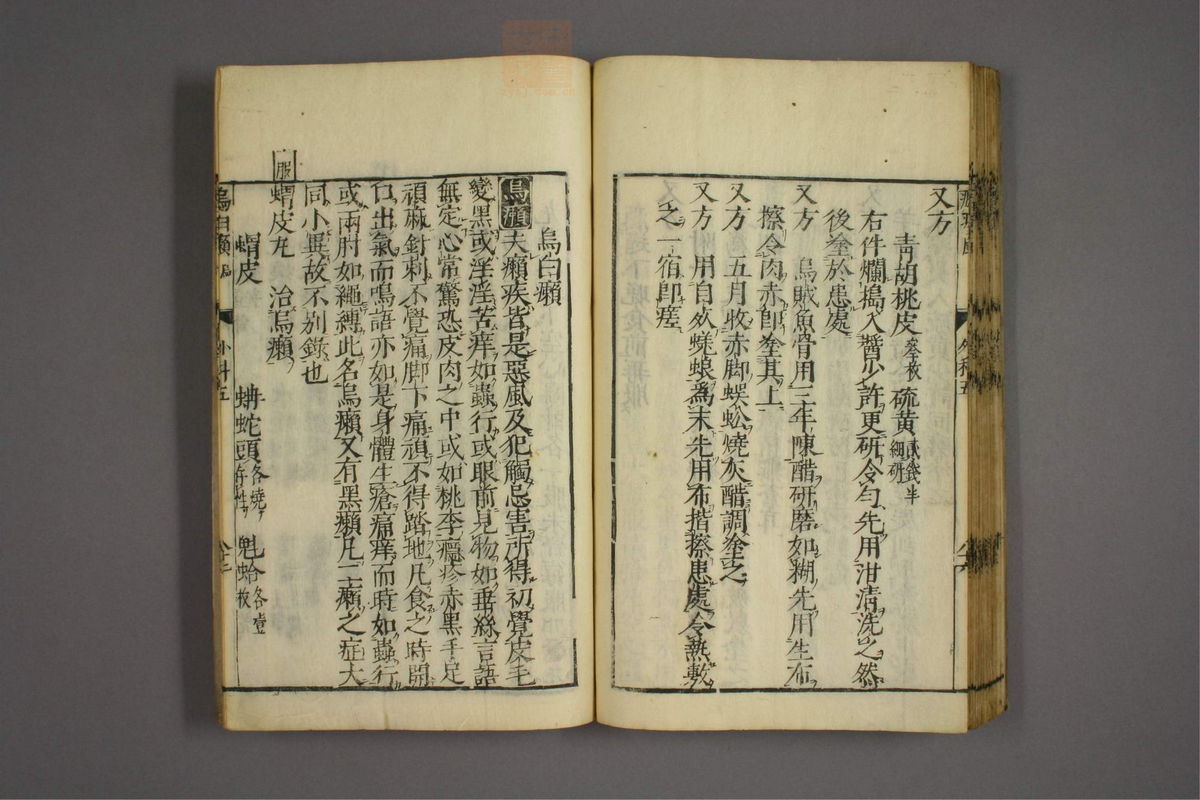 又方
青胡桃皮 叁枚 硫黄 貳錢半細研
右件爛搗入醬少許更研令勻先用泔淸洗之然
後塗於患處
又方 烏賊魚骨用三年陳醋研磨如糊先用生布
擦令肉赤即塗其上
又方 五月收赤脚蜈蚣燒灰醋調塗之
又方 用自死蜣蜋爲末先用布揩擦患處令熱敷
之一宿即瘥
外科五
烏白癩
烏癩夫癩疾皆是惡風及犯觸忌害所得初覺皮毛
變黑或淫淫苦痒如蟲行或眼前見物如垂絲言語
無定心常驚恐皮肉之中或如桃李癮疹赤黑手足
頑麻針刺不覺痛脚下痛頑不得踏地凡食之時開
口出氣而鳴語亦如是身體生瘡痛痒而時如蟲行
或兩肘如繩縛此名烏癩又有黑癩凡二癩之症大
同小異故不別錄也
服
蝟皮丸 治烏癩
蝟皮 蚺蛇頭 各燒存性 魁蛤 各壹枚
烏白癩
外科五